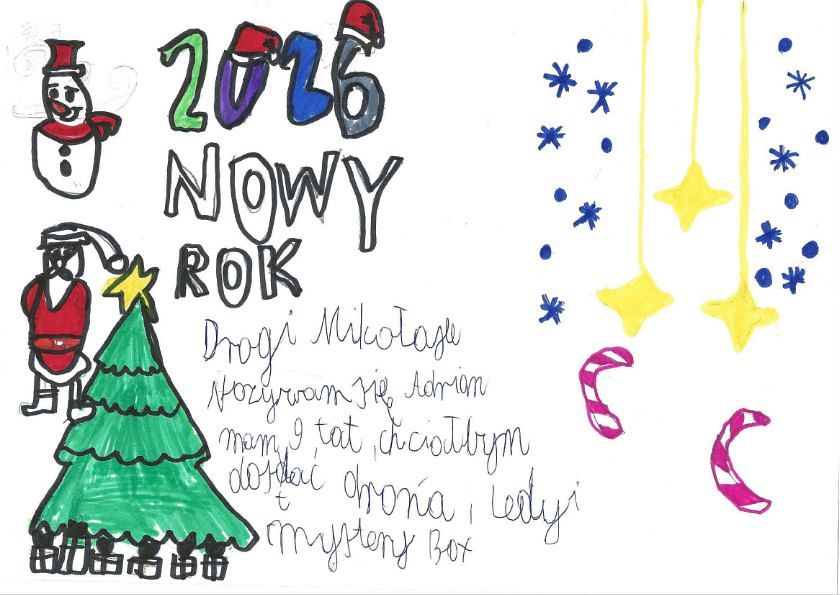 2026
NOWY
ROK
Drogi Mikołaju
Nazywam się Adrian
mam 9 lat, chciałbym
dostać drona, Ledy i
mystery Box